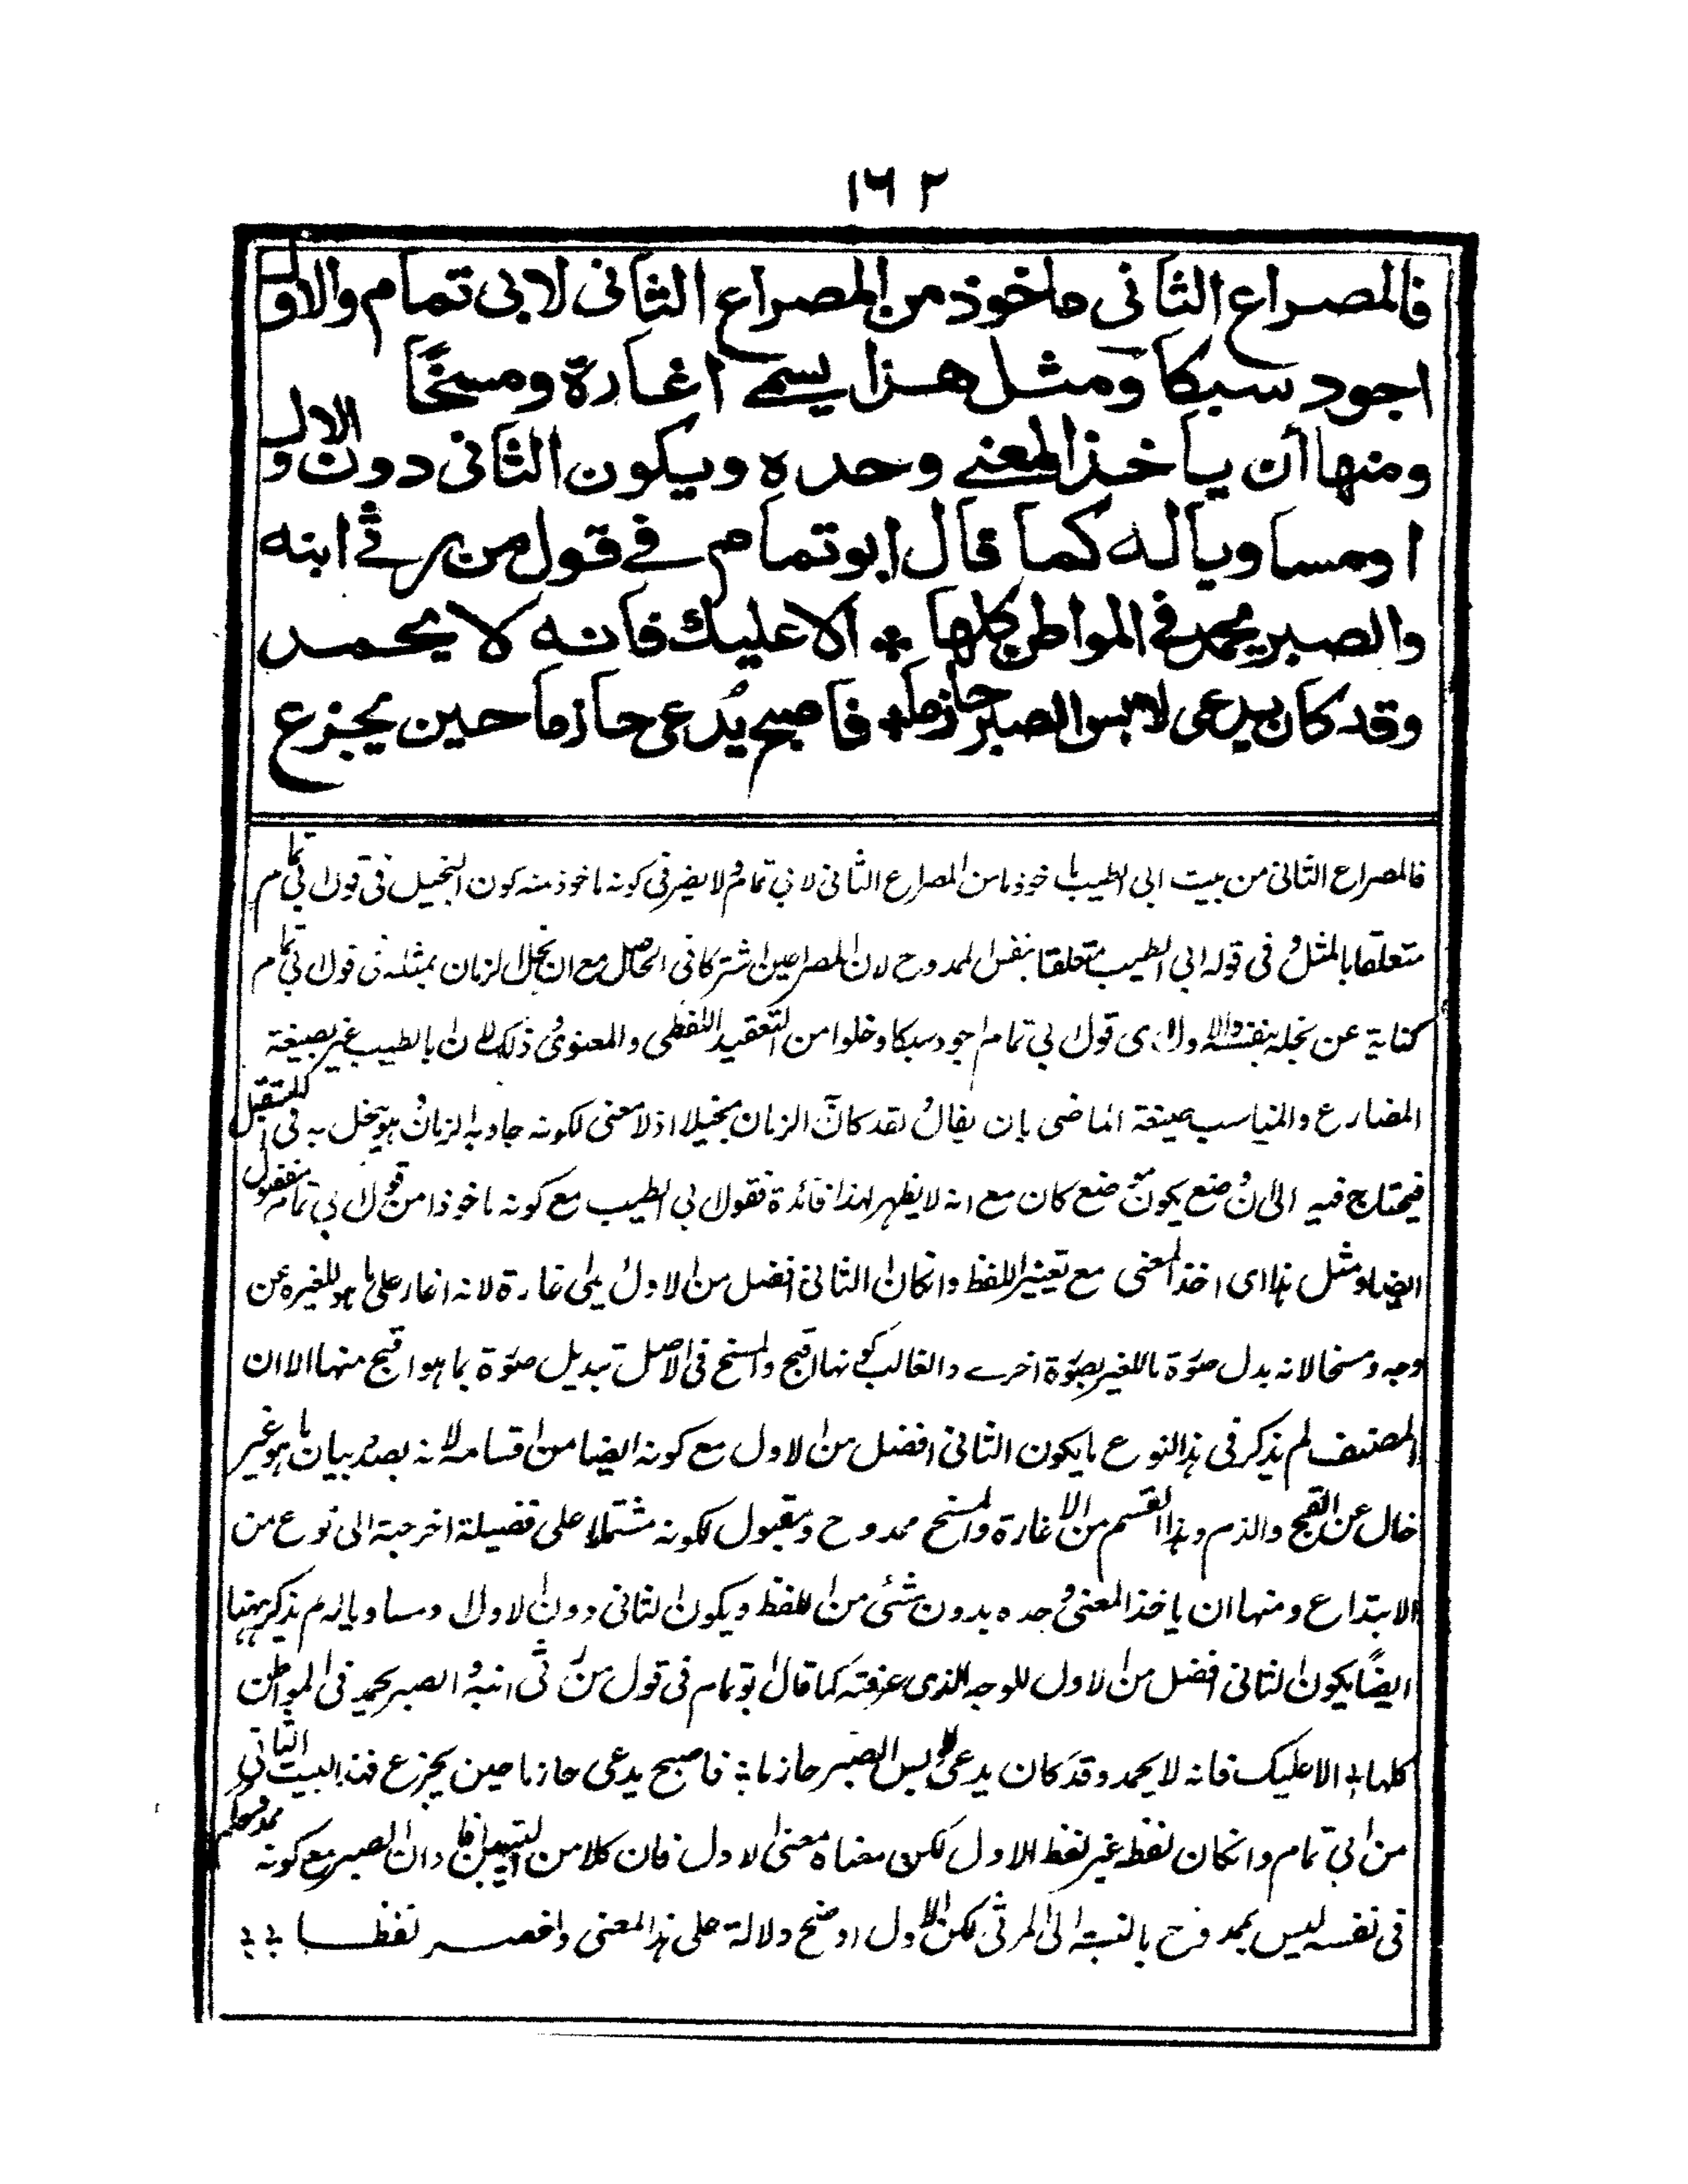 ١٦٢
فالمصراع الثانى ماخوذ من المصراع الثانى لابى تمام والاول
اجود سبكا ومثل هذا يسمى اغارة ومسخًا
ومنها أن ياخذ المعنى وحده ويكون الثانى دون الاول
او مساويا له كما قال ابو تمام فى قول من رثى ابنه
والصبر يحمد فى المواطن كلها * الا عليك فانه لا يحمد
وقد كان يدعى لابس الصبر حازما * فاصبح يُدعى حازما حين يجزع
فالمصراع الثانى من بيت ابى الطيب ماخوذ من المصراع الثانى لابى تمام ولا يضر فى كونه ماخوذ منه كون البخيل فى قول ابى تمام
متعلقا بالمثل وفى قوله ابى الطيب متعلقا بنفس الممدوح لان المصراعين اشتركا فى الحاصل مع ان بخل الزمان بمثله فى قول ابى تمام
كناية عن بخله بنفسه والاول اى قول ابى تمام اجود سبكا وخلوا من التعقيد اللفظى والمعنوى وذلك لان ابا الطيب عبر بصيغة
المضارع والمناسب صيغة الماضى بان يقال ولقد كان الزمان بخيلا اذ لا معنى لكونه جاد به الزمان وهو يبخل به فى المستقبل
فيحتاج فيه الى ان وضع يكون موضع كان مع انه لا يظهر لهذا فائدة فقول ابى الطيب مع كونه ماخوذا من قول ابى تمام مفضول
ايضا ومثل هذا اى اخذ المعنى مع تغيير اللفظ وانكان الثانى افضل من الاول يسمى اغارة لانه اغار على ما هو للغير عن
وجه ومسخا لانه بدل صورة ما للغير بصورة اخرى والغالب كونها اقبح والمسخ فى الاصل تبديل صورة بما هو اقبح منها الا ان
المصنف لم يذكر فى هذا النوع ما يكون الثانى افضل من الاول مع كونه ايضا من اقسامه لانه بصدد بيان ما هو غير
خال عن القبح والذم وهذا القسم من الاغارة والمسخ ممدوح ومقبول لكونه مشتملا على فضيلة اخرجته الى نوع من
الابتداع ومنها ان ياخذ المعنى وحده بدون شئ من اللفظ ويكون الثانى دون الاول ومساويا له لم يذكر ههنا
ايضًا يكون الثانى افضل من الاول للوجه الذى عرفته كما قال ابو تمام فى قول من رثى ابنه والصبر يحمد فى المواطن
كلها * الا عليك فانه لا يحمد وقد كان يدعى لابس الصبر حازما * فاصبح يدعى حازما حين يجزع فهذا البيت الثانى
من ابى تمام وانكان لفظه غير لفظ الاول لكن معناه معنى الاول فان كلا من البيتين وان الصبر مع كونه
فى نفسه ليس بممدوح بالنسبة الى المرثى لكن الاول اوضح دلالة على هذا المعنى واخصر لفظا